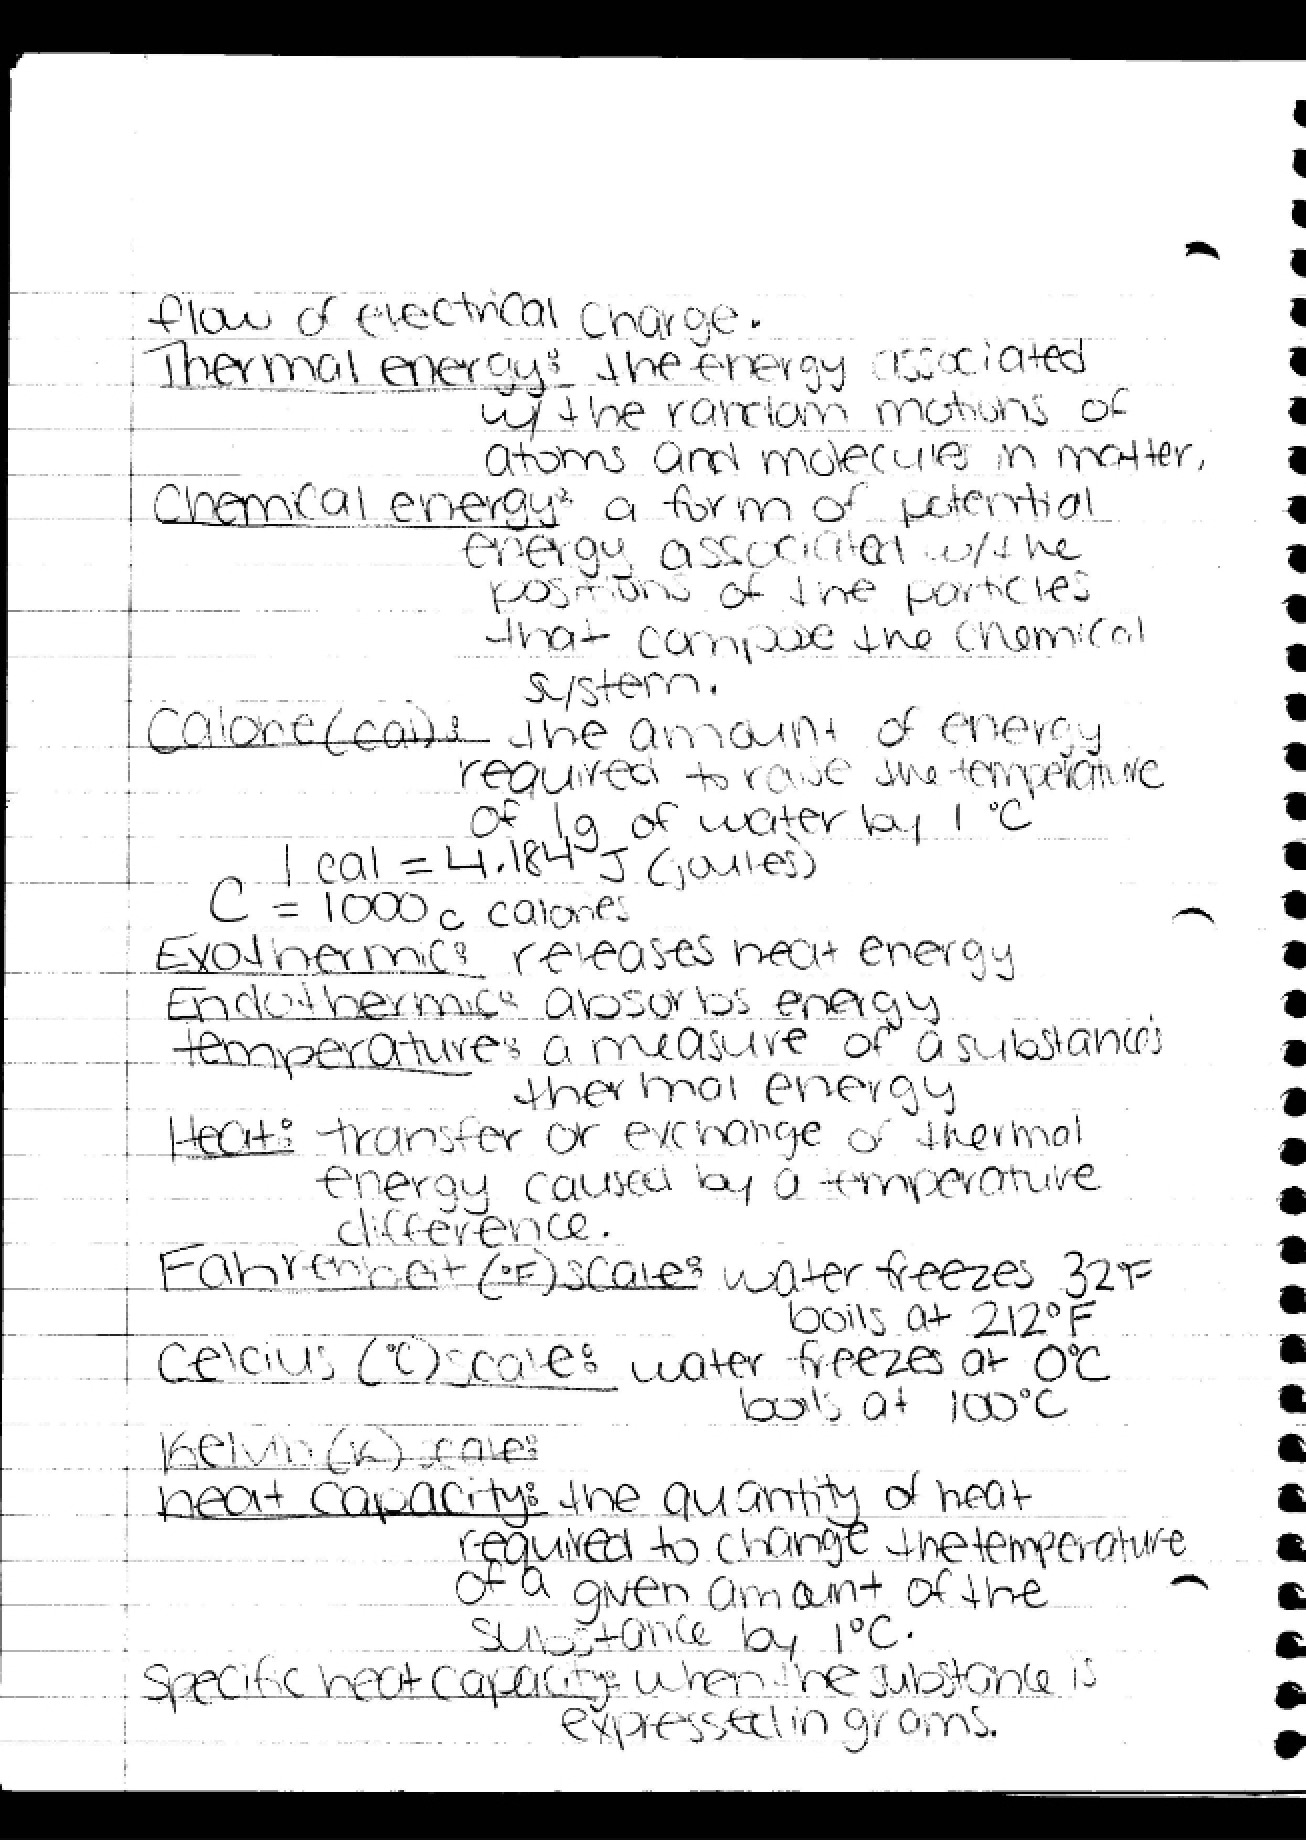 flow of electrical charge.
Thermal energy: the energy associated
w/ the random motions of
atoms and molecules in matter.
Chemical energy: a form of potential
energy associated w/ the
positions of the particles
that compose the chemical
system.
Calorie (cal): the amount of energy
required to raise the temperature
of 1g of water by 1 °C
1 cal = 4.184 J (joules)
C = 1000 c calories
Exothermic: releases heat energy
Endothermic: absorbs energy
temperature: a measure of a substance's
thermal energy
Heat: transfer or exchange of thermal
energy caused by a temperature
difference.
Fahrenheit (°F) scale: water freezes 32°F
boils at 212°F
Celcius (°C) scale: water freezes at 0°C
boils at 100°C
Kelvin (K) scale:
heat capacity: the quantity of heat
required to change the temperature
of a given amount of the
substance by 1°C.
Specific heat capacity: when the substance is
expressed in grams.